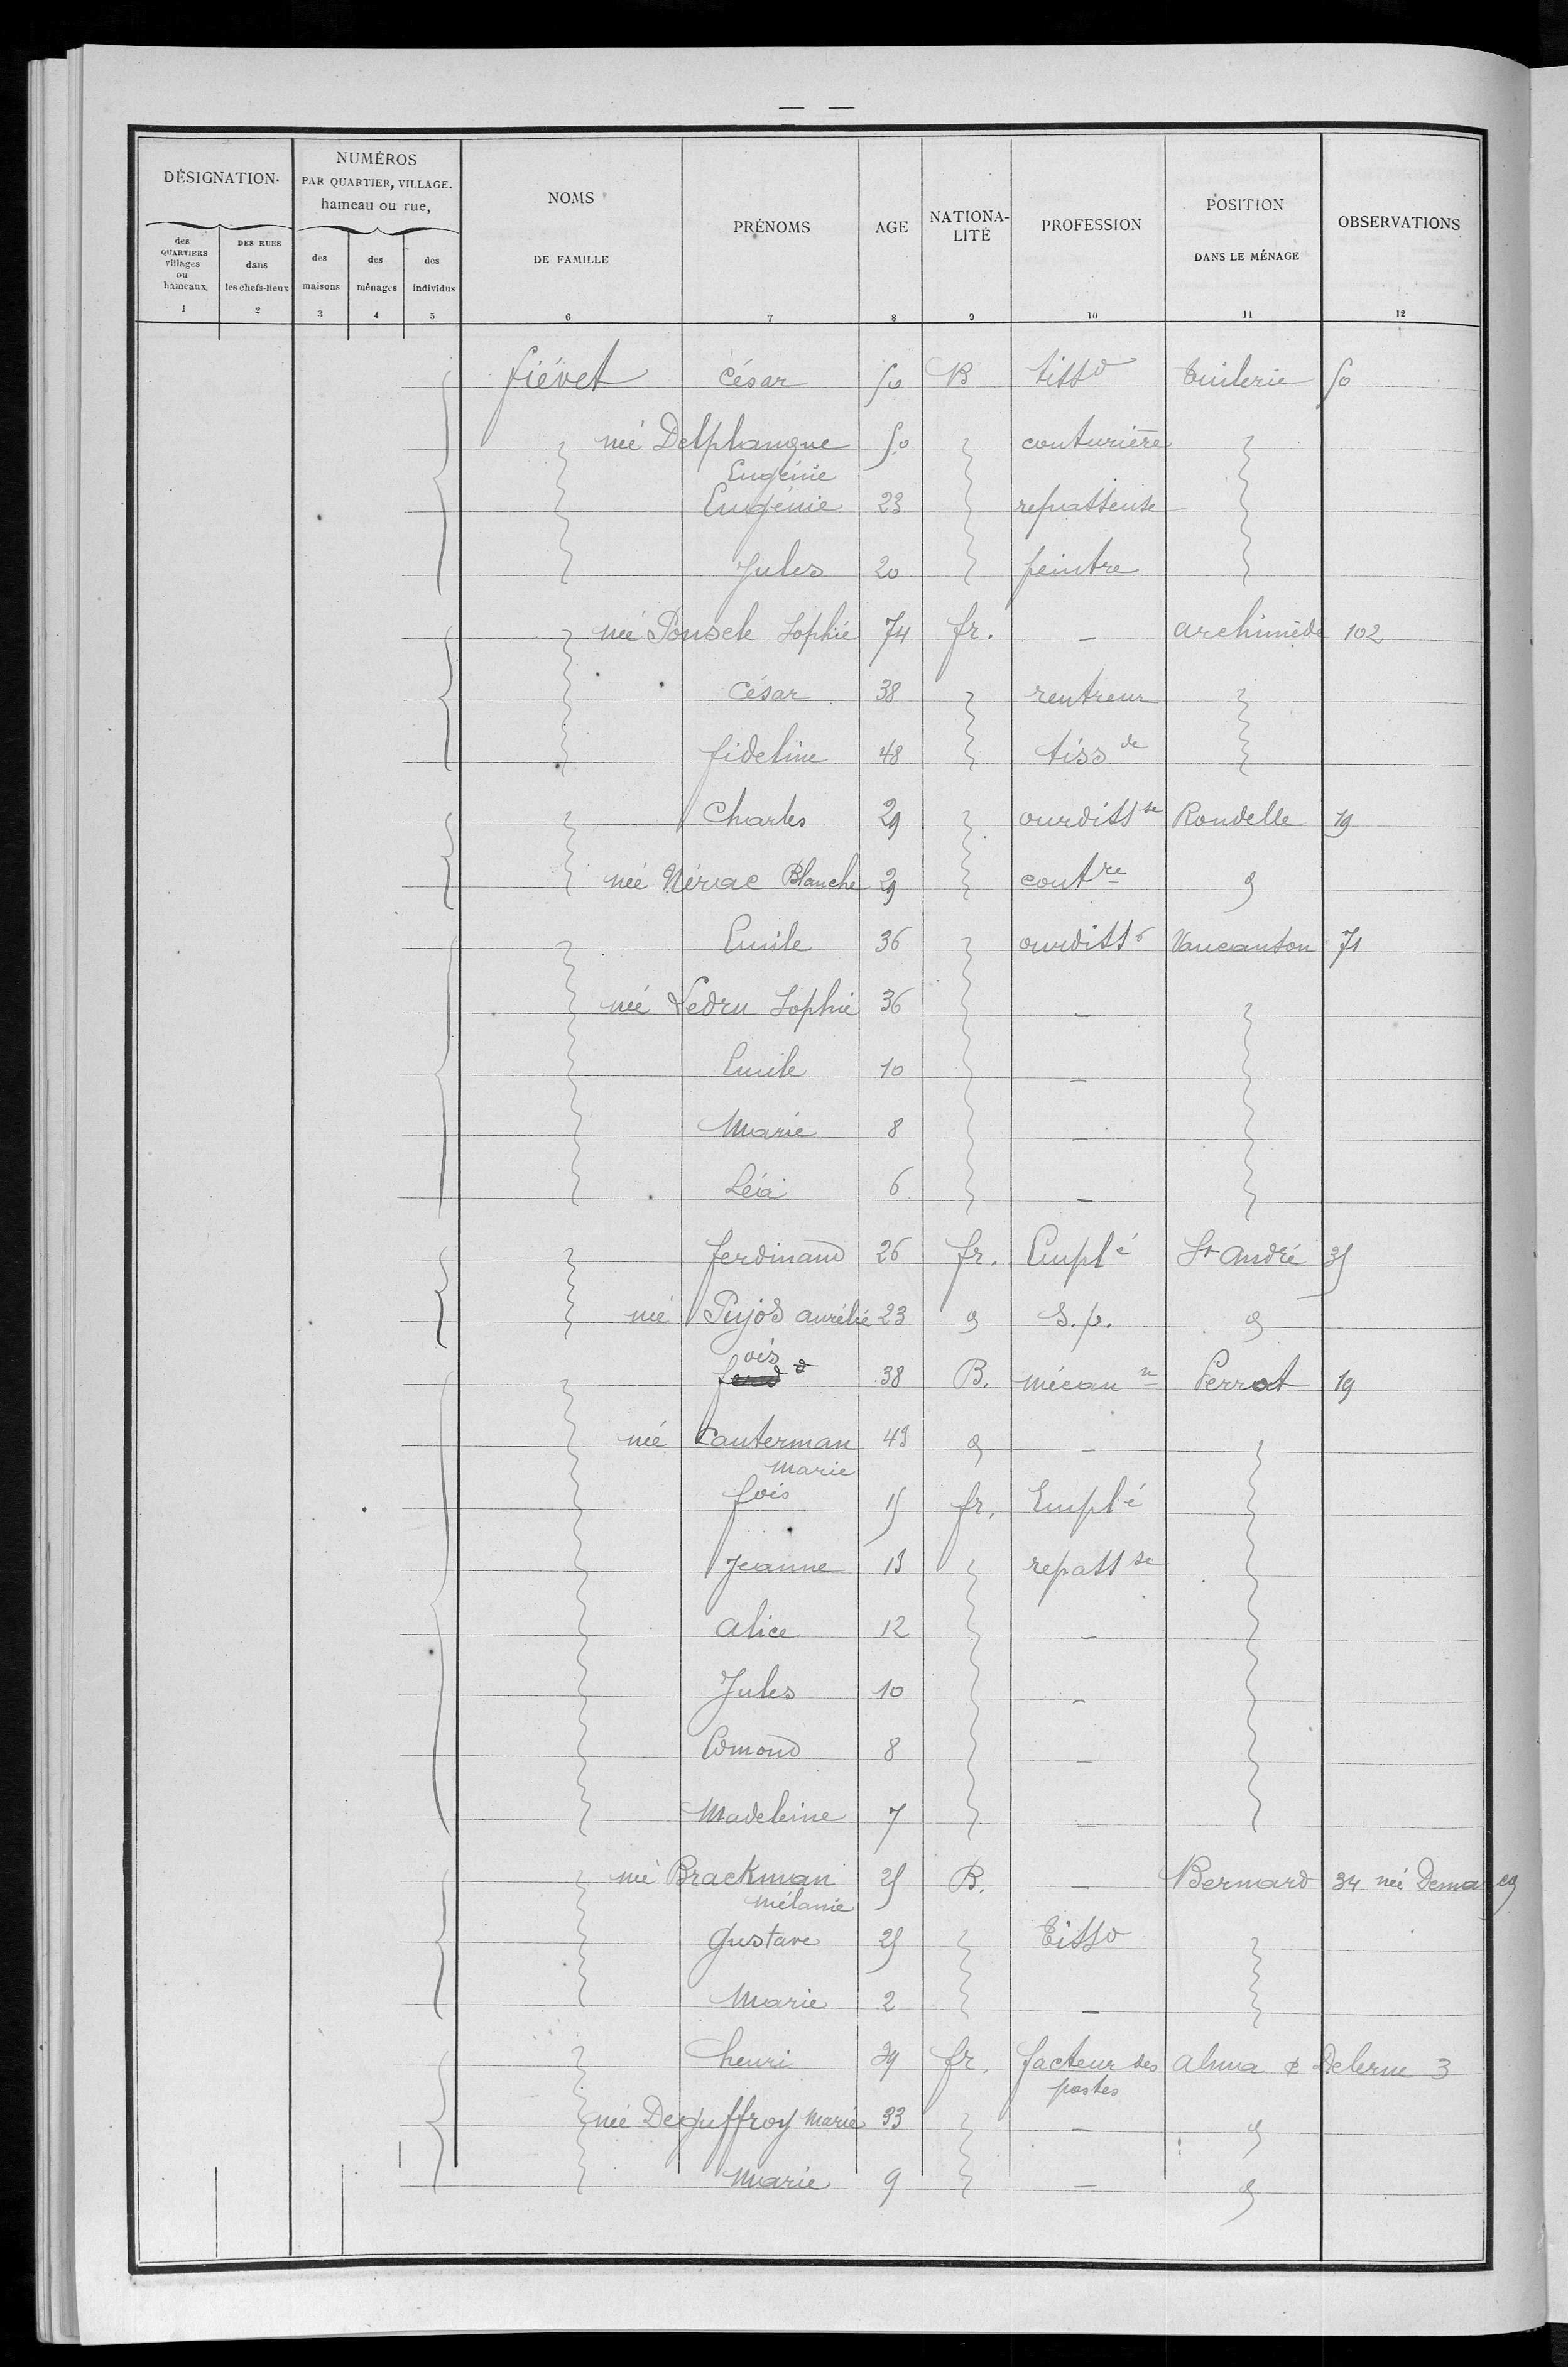 DÉSIGNATION
NUMÉROS
PAR QUARTIER, VILLAGE,
hameau ou rue,
NOMS
DE FAMILLE
PRÉNOMS
AGE
NATIONA-
LITÉ
PROFESSION
POSITION
DANS LE MÉNAGE
OBSERVATIONS
des
QUARTIERS
villages
ou
hameaux
DES RUES
dans
les chefs-lieux
des
maisons
des
ménages
des
individus
1 2 3 4 5 6 7 8 9 10 11 12
fiévet César 50 B tissd Tuilerie 50
née Delplanque 50 couturière
Eugénie
Eugénie 23 repasseuse
Jules 20 peintre
née Ponsele Sophie 74 fr. - archimède 102
César 38 rentreur
fideline 48 tiss de
Charles 29 ourdiss se Rondelle 19
née Nérsac Blanche 29 coutre
Emile 36 ourdiss r Vaucanson 71
née Ledru Sophie 36 -
Emile 10 -
Marie 8 -
Léa 6 -
ferdinand 26 fr. Emplé St andré 35
née Pujos aurélie 23 S. p.
fois 38 B. mécan n Perrot 19
née Cauterman 43 -
marie
fois 15 fr. Emplé
Jeanne 13 repass se
alice 12 -
Jules 10 -
Edmond 8 -
Madeleine 7 -
née Brackman 25 B. - Bernard 34 née Demarcq
mélanie
Gustave 25 Tissd
Marie 2 -
henri 39 fr. facteur des alma & Delerue 3
postes
née Deguffroy Marie 33 -
Marie 9 -